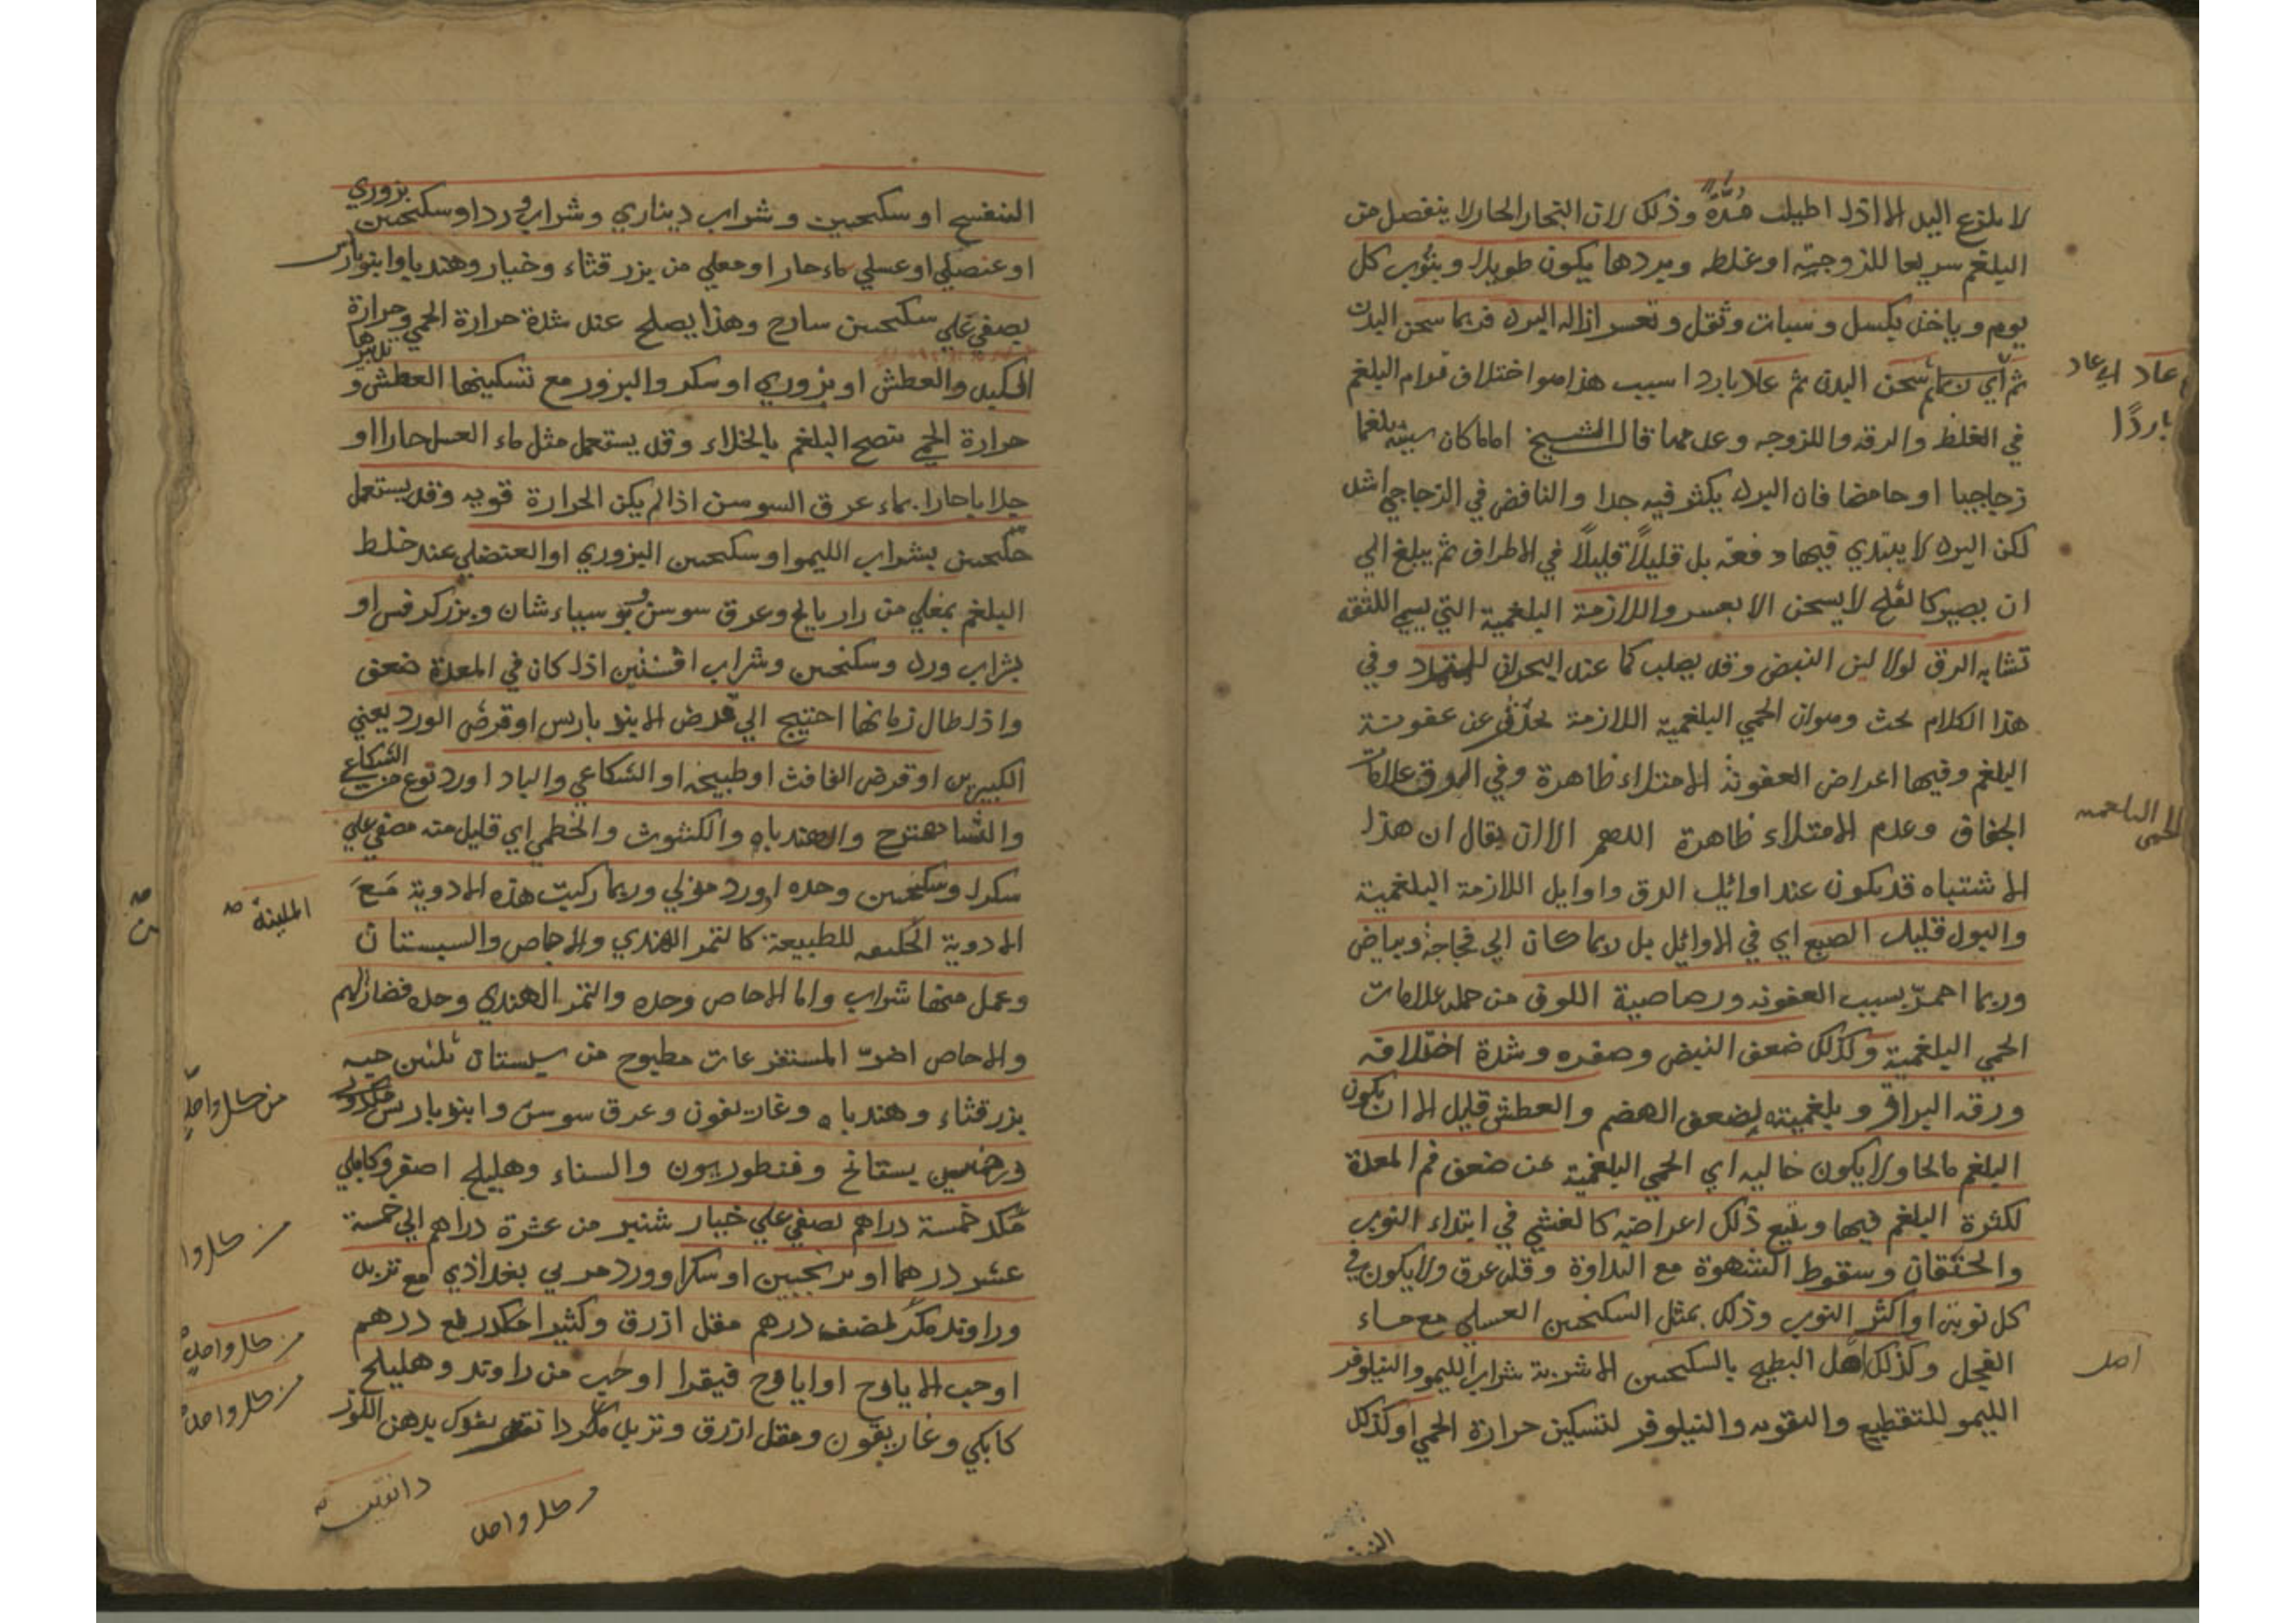 لا يلذع اليد الا اذا اطيلت مدة وذلك لان البخار الحار لا ينفصل من
البلغم سريعا للزوجته او غلظه وبردها يكون طويلا وينوب كل
يوم وياخذ بكسل وسبات وثقل وتعسر ازالة البرد فربما سخن البدن
ثم اي سخن البدن ثم علا باردا سبب هذا هو اختلاف قوام البلغم
عاد اي عاد
باردًا
في الغلظ والرقه واللزوجه وعدمها قال الشيخ اما ما كان سببه بلغما
زجاجيا او حامضا فان البرد يكثر فيه جدا والنافض في الزجاجي اشد
لكن البرد لا يبتدي فيها دفعة بل قليلًا قليلًا في الاطراف ثم يبلغ الي
ان يصير كالثلج لا يسخن الا بعسر واللازمة البلغمية التي يسمي اللثقه
تشابه الدق لولا لين النبض وقد يصلب كما عند البحران للتمدد وفي
هذا الكلام بحث وهو ان الحمي البلغمية اللازمة تحدث عن عفونة
البلغم وفيها اعراض العفونة الامتلاء ظاهرة وفي الدق علامات
الجفاف وعدم الامتلاء ظاهرة اللهم الا ان يقال ان هذا
الحمى البلغميه
الاشتباه قد يكون عند اوائل الدق واوايل اللازمة البلغمية
والبول قليل الصبغ اي في الاوائل بل ربما كان الي فجاجة وبياض
وربما احمرّ بسبب العفونه ورصاصية اللون من جمله علامات
الحمي البلغمية وكذلك ضعف النبض وصغره وشدة اختلافه
ورقه البراز وبلغميته لضعف الهضم والعطش قليل الا ان يكون
البلغم مالحا ولا يكون خاليه اي الحمي البلغمية عن ضعف فم المعدة
لكثرة البلغم فيها ويتبع ذلك اعراضه كالغشي في ابتداء النوب
والخفقان وسقوط الشهوة مع النداوة وقله عرق ولا يكون في
كل نوبة او اكثر النوب وذلك بمثل السكنجبين العسلي مع ماء
الفجل وكذلك اكل البطيخ بالسكنجبين الاشربة شراب الليمو والنيلوفر
اكل
الليمو للتقطيع والتقويه والنيلوفر لتسكين حرارة الحمي او كذلك
البنفسج او سكنجبين وشراب ديناري وشراب ورد او سكنجبين بزوري
او عنصلي او عسلي بماء حار او مغلي من بزر قثاء وخيار وهندبا وانبرباريس
يصفي علي سكنجبين ساذج وهذا يصلح عند شدة حرارة الحمي وحرارة
الكبد والعطش او بزوري او سكر والبزور مع تسكينها العطش و
حرارة الحمي تنضج البلغم بالجلاء وقد يستعمل مثل ماء العسل حارا او
جلابا حارا بماء عرق السوسن اذا لم يكن الحرارة قويه وقد يستعمل
سكنجبين بشراب الليمو او سكنجبين البزوري او العنصلي عند غلظ
البلغم بمغلي من رازيانج وعرق سوسن وبرسياءشان وبزر كرفس او
بشراب ورد وسكنجبين وشراب افسنتين اذا كان في المعدة ضعف
واذا طال زمانها احتيج الي قرص الانبرباريس او قرص الورد يعني
الكبيرين او قرص الغافث او طبيخه او الشكاعي والباداورد نوع من الشكاعي
والشاهترج والهندباء والكشوث والخطمي اي قليل منه مصفي علي
سكر او سكنجبين وحده او ورد منزلي وربما ركبت هذه الادوية مَعَ
الادوية للطبيعة كالتمر الهندي والاجاص والسبستان
الملينة صه
وعمل منها شراب واما الاجاص وحده والتمر الهندي وحده فضار لهم
والاجاص اضرّ المستفرغات مطبوخ من سبستان ثلثين حبه
بزر قثاء وهندباء وغاريقون وعرق سوسن وانبرباريس
من كل واحد
درهمين بسفانج وقنطوريون والسناء وهليلج اصفر وكابلي
خمسة دراهم يصفي علي خيار شنبر من عشرة دراهم الي خمسة
من كل وا
عشر درهما او ترنجبين او سكر او ورد مربي بغدادي مع تربد
وراوند نصف درهم مقل ازرق وكثيرا ربع درهم
من كل واحد
او حب الايارج او ايارج فيقرا او حب من راوند وهليلج
من كل واحد
كابلي وغاريقون ومقل ازرق وتربد بدهن اللوز
دانقين
من كل واحد